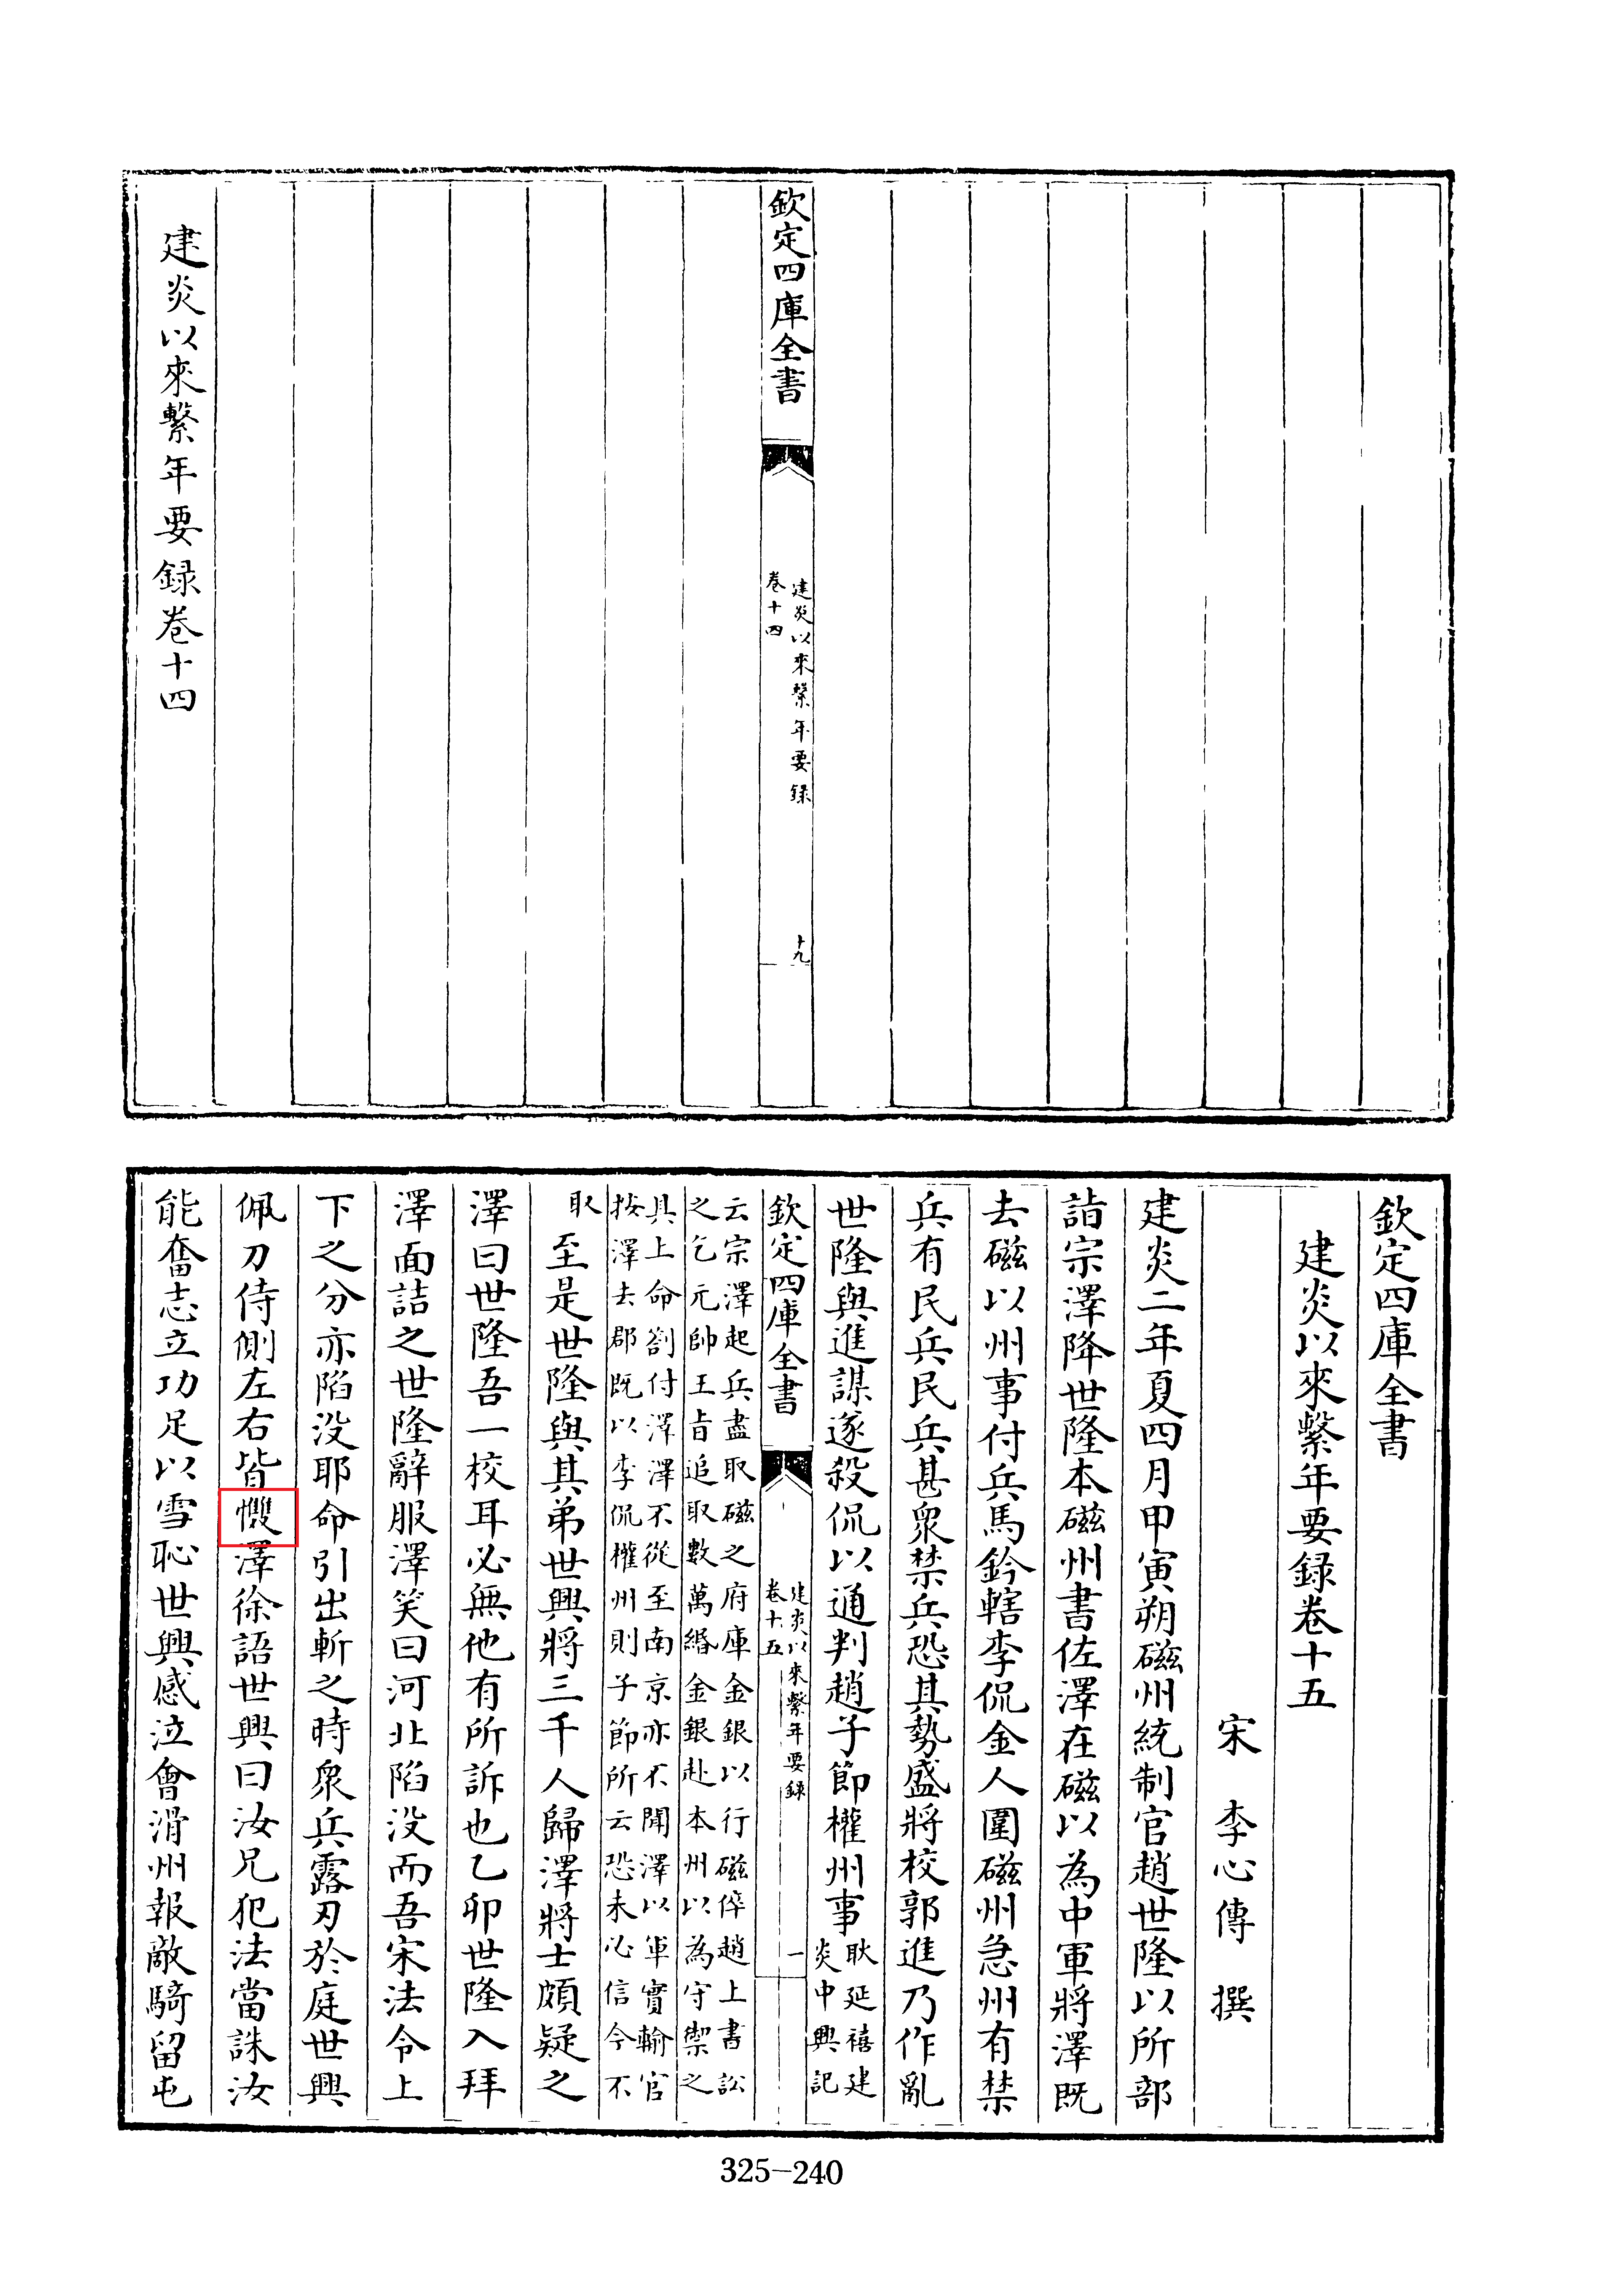 欽定四庫全書
建炎以來繫年要録
卷十四
十九
建炎以來繫年要録卷十四
欽定四庫全書
建炎以來繫年要録卷十五
宋 李心傳 撰
建炎二年夏四月甲寅朔磁州統制官趙世隆以所部
詣宗澤降世隆本磁州書佐澤在磁以為中軍將澤既
去磁以州事付兵馬鈐轄李侃金人圍磁州急州有禁
兵有民兵民兵甚衆禁兵恐其勢盛將校郭進乃作亂
世隆與進謀遂殺侃以通判趙子節權州事
耿延禧建
炎中興記
欽定四庫全書
建炎以來繫年要録
卷十五
一
云宗澤起兵盡取磁之府庫金銀以行磁倅趙上書訟
之乞元帥王㫖追取數萬緡金銀赴本州以為守禦之
具上命劄付澤澤不從至南京亦不聞澤以軍實輸官
按澤去郡既以李侃權州則子節所云恐未必信今不
取
至是世隆與其弟世興將三千人歸澤將士頗疑之
澤曰世隆吾一校耳必無他有所訴也乙卯世隆入拜
澤面詰之世隆辭服澤笑曰河北陷没而吾宋法令上
下之分亦陷没耶命引出斬之時衆兵露刃於庭世興
佩刀侍側左右皆𢥠澤徐語世興曰汝兄犯法當誅汝
能奮志立功足以雪恥世興感泣會滑州報敵騎留屯
325-240